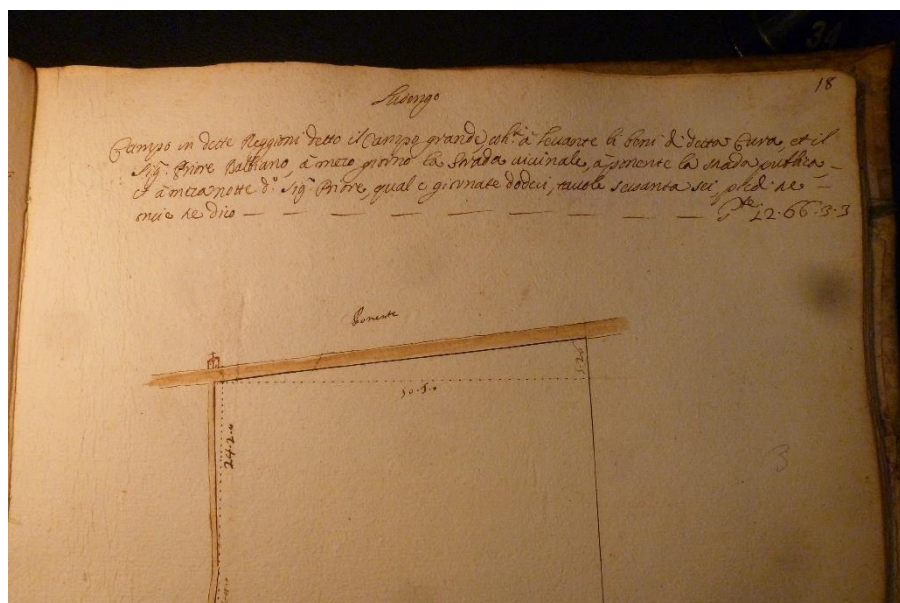 18
Campo in dette Reggioni detto il Campo grande, coh.ti à levante li beni di detta Cura, et il
Sig.r Priore Balbiano, à mezo giorno la strada vicinale, à ponente la strada publica
e à mezanotte d.o Sig.r Priore, qual è giornate dodeci, tavole sessanta sei, piedi tre
oncie tre dico G.te 12.66.3.3
Ponente
24.2.0
3